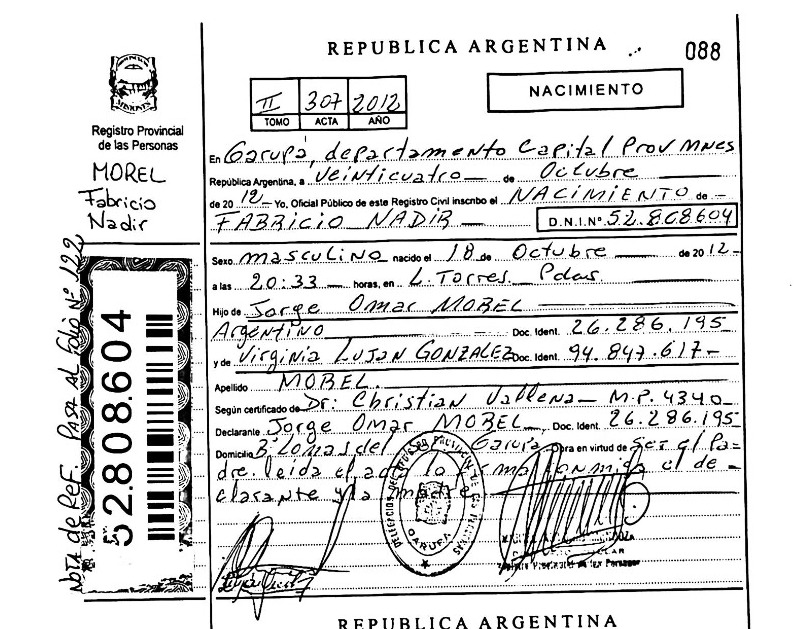 REPUBLICA ARGENTINA
088
NACIMIENTO
II 307 2012
TOMO ACTA AÑO
Registro Provincial
de las Personas
MOREL
Fabricio
Nadir
NOTA de REF. PASA AL Folio Nº 122
52.808.604
En Garupá, departamento Capital Prov Mnes
República Argentina, a veinticuatro — de Octubre
de 2012 — Yo, Oficial Público de este Registro Civil inscribo el NACIMIENTO de —
FABRICIO NADIR — D.N.I.Nº 52.808.604
Sexo masculino nacido el 18 de Octubre — de 2012 -
a las 20:33 — horas, en L. Torres. Pdas.
Hijo de Jorge Omar MOREL
Argentino Doc. Ident. 26.286.195
y de Virginia LUJAN GONZALEZ Doc. Ident. 94.847.617 -
Apellido MOREL.
Según certificado de Dr. Christian Vallena — M.P. 4340 -
Declarante Jorge Omar MOREL Doc. Ident. 26.286.195
Domicilio Bº Lomas del Garupá Obra en virtud de Ser el Pa=
dre. leida el acta la firma conmigo el de -
clarante y la madre
DELEGACION DEL REGISTRO PROVINCIAL DE LAS PERSONAS
GARUPA
REPUBLICA ARGENTINA